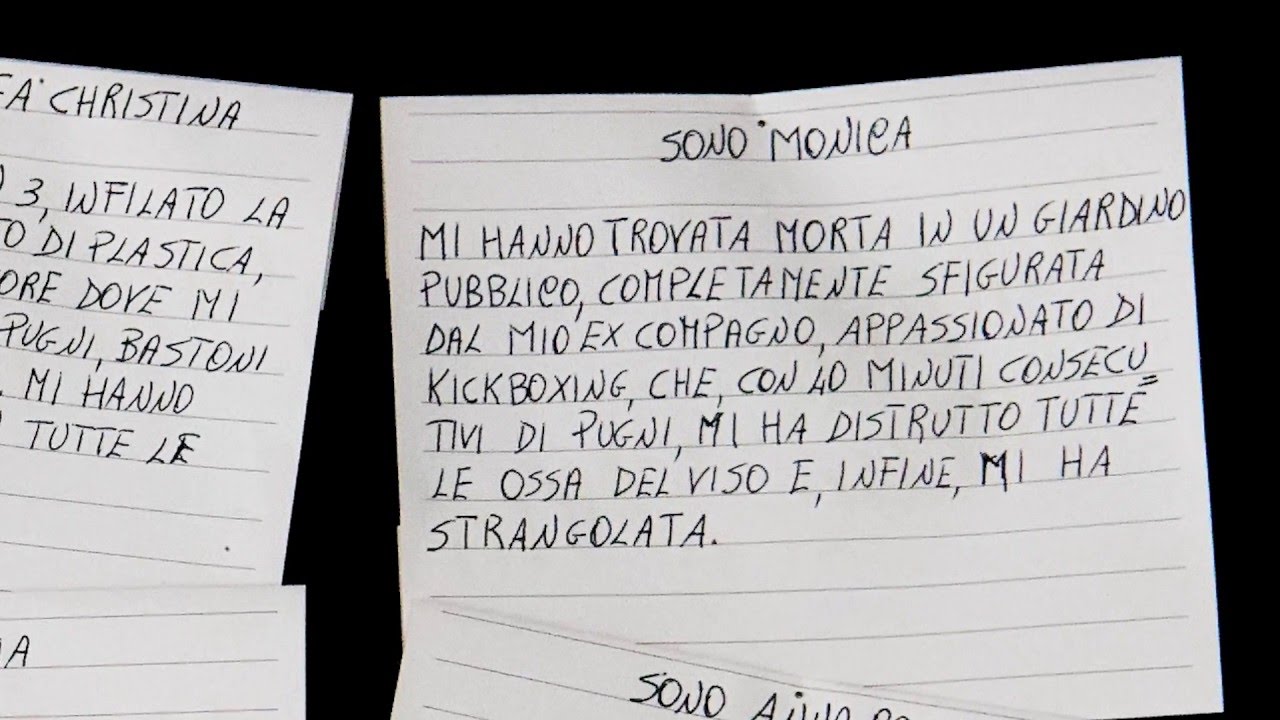 FA CHRISTINA
3, INFILATO LA
TO DI PLASTICA,
ORE DOVE MI
PUGNI, BASTONI
MI HANNO
TUTTE LE
SONO MONICA
MI HANNO TROVATA MORTA IN UN GIARDINO
PUBBLICO, COMPLETAMENTE SFIGURATA
DAL MIO EX COMPAGNO, APPASSIONATO DI
KICKBOXING, CHE, CON 40 MINUTI CONSECU=
TIVI DI PUGNI, MI HA DISTRUTTO TUTTE
LE OSSA DEL VISO E, INFINE, MI HA
STRANGOLATA.
SONO